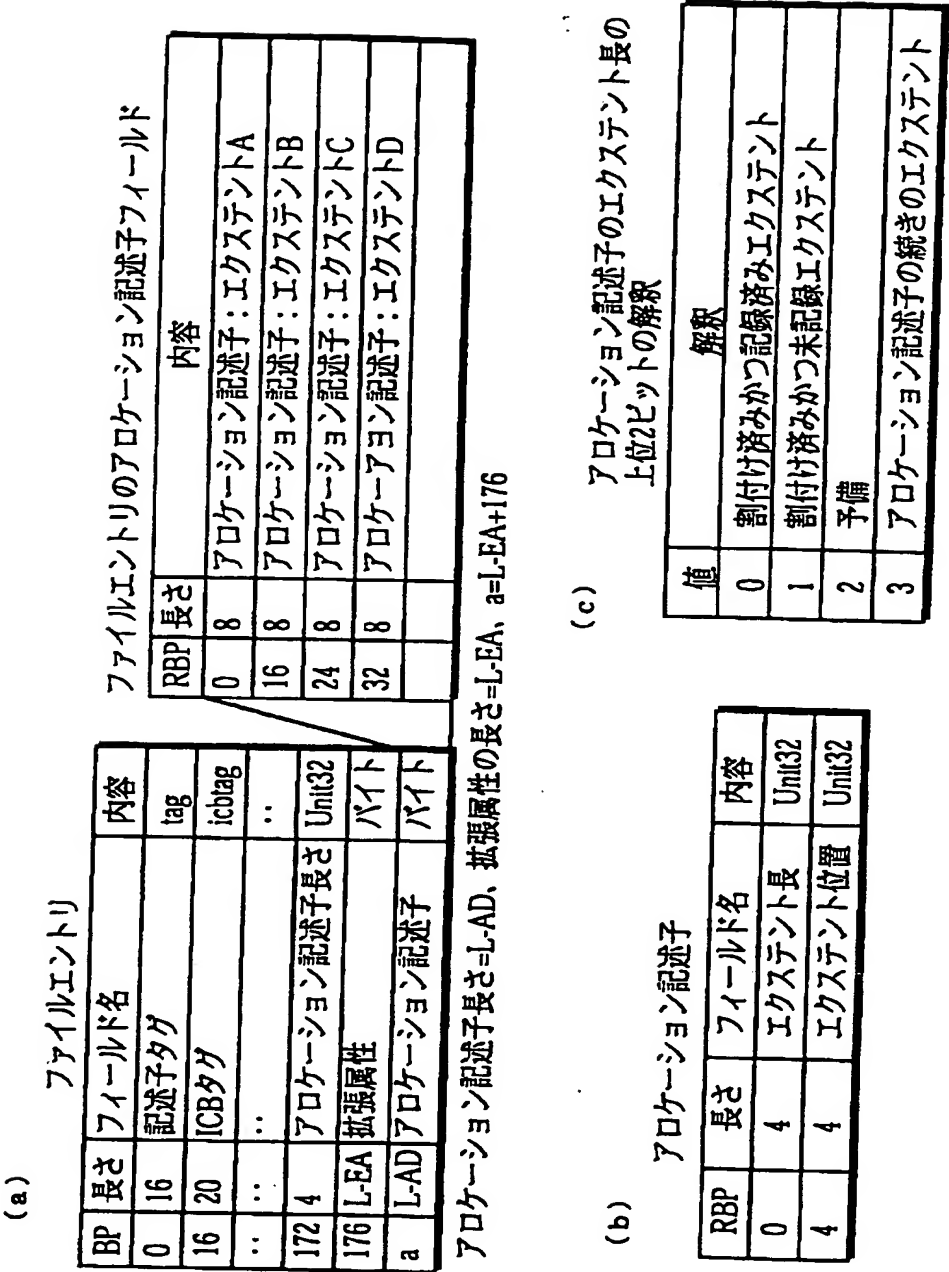 (a)
ファイルエントリ
BP 長さ フィールド名 内容
0 16 記述子タグ tag
16 20 ICBタグ icbtag
: : : :
172 4 アロケーション記述子長さ Unit32
176 L-EA 拡張属性 バイト
a L-AD アロケーション記述子 バイト
アロケーション記述子長さ=L-AD、拡張属性の長さ=L-EA、a=L-EA+176
ファイルエントリのアロケーション記述子フィールド
RBP 長さ 内容
0 8 アロケーション記述子:エクステントA
16 8 アロケーション記述子:エクステントB
24 8 アロケーション記述子:エクステントC
32 8 アロケーアヨン記述子:エクステントD
(b)
アロケーション記述子
RBP 長さ フィールド名 内容
0 4 エクステント長 Unit32
4 4 エクステント位置 Unit32
(c)
アロケーション記述子のエクステント長の
上位2ビットの解釈
値 解釈
0 割付け済みかつ記録済みエクステント
1 割付け済みかつ未記録エクステント
2 予備
3 アロケーション記述子の続きのエクステント